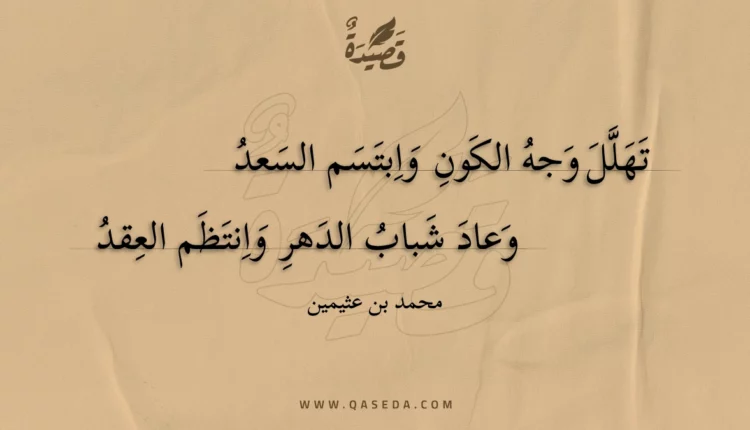 قَصِيْدَةٌ
تَهَلَّلَ وَجهُ الكَونِ وَاِبتَسَم السَعدُ
وَعادَ شَبابُ الدَهرِ وَاِنتَظَم العِقدُ
محمد بن عثيمين
WWW.QASEDA.COM